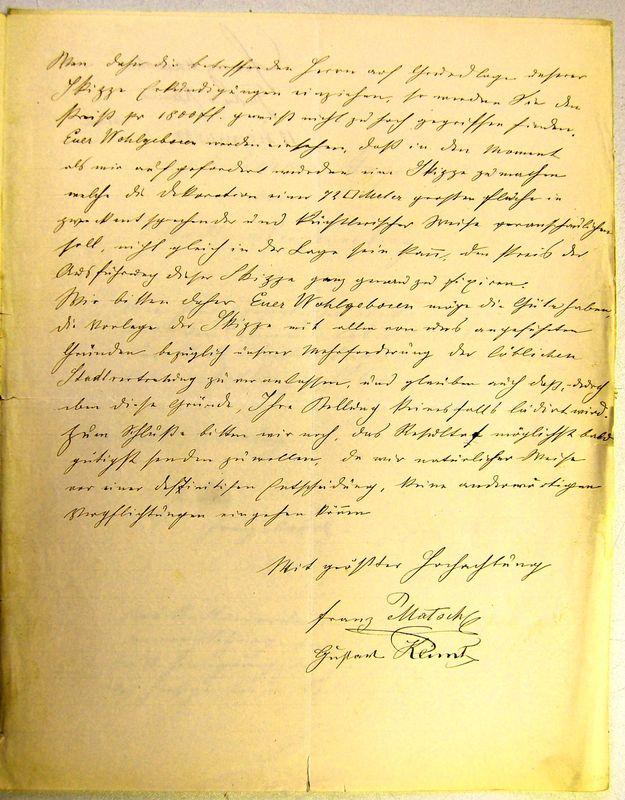 Wen daher die betreffenden Herrn auf Grundlage unserer
Skizze Erkundigungen einziehen, so werden Sie den
Preiß pr 1800 fl. gewiß nicht zu hoch gegriffen finden.
Euer Wohlgeboren werden einsehen, daß in dem Moment
als wir aufgefordert wurden eine Skizze zu machen
welche die Dekoration einer 72 □ Meter großen Fläche in
zweckentsprechender und künstlerischer Weise veranschaulichen
soll, nicht gleich in der Lage sein kann, den Preis der
Ausführung dieser Skizze ganz genau zu fixiren.
Wir bitten daher Euer Wohlgeboren möge die Güte haben,
die Vorlage der Skizze mit allen von uns angeführten
Gründen bezüglich unserer Mehrforderung der löblichen
Stadtvertretung zu veranlassen, und glauben auch daß, durch
eben diese Gründe, Ihre Stellung keinesfalls lädirt wird.
Zum Schluße bitten wir noch, das Resultat möglichst bald
gütigst senden zu wollen, da wir natürlicher Weise
vor einer definitiven Entscheidung, keine anderwärtigen
Verpflichtungen eingehen können
Mit größter Hochachtung
Franz Matsch
Gustav Klimt